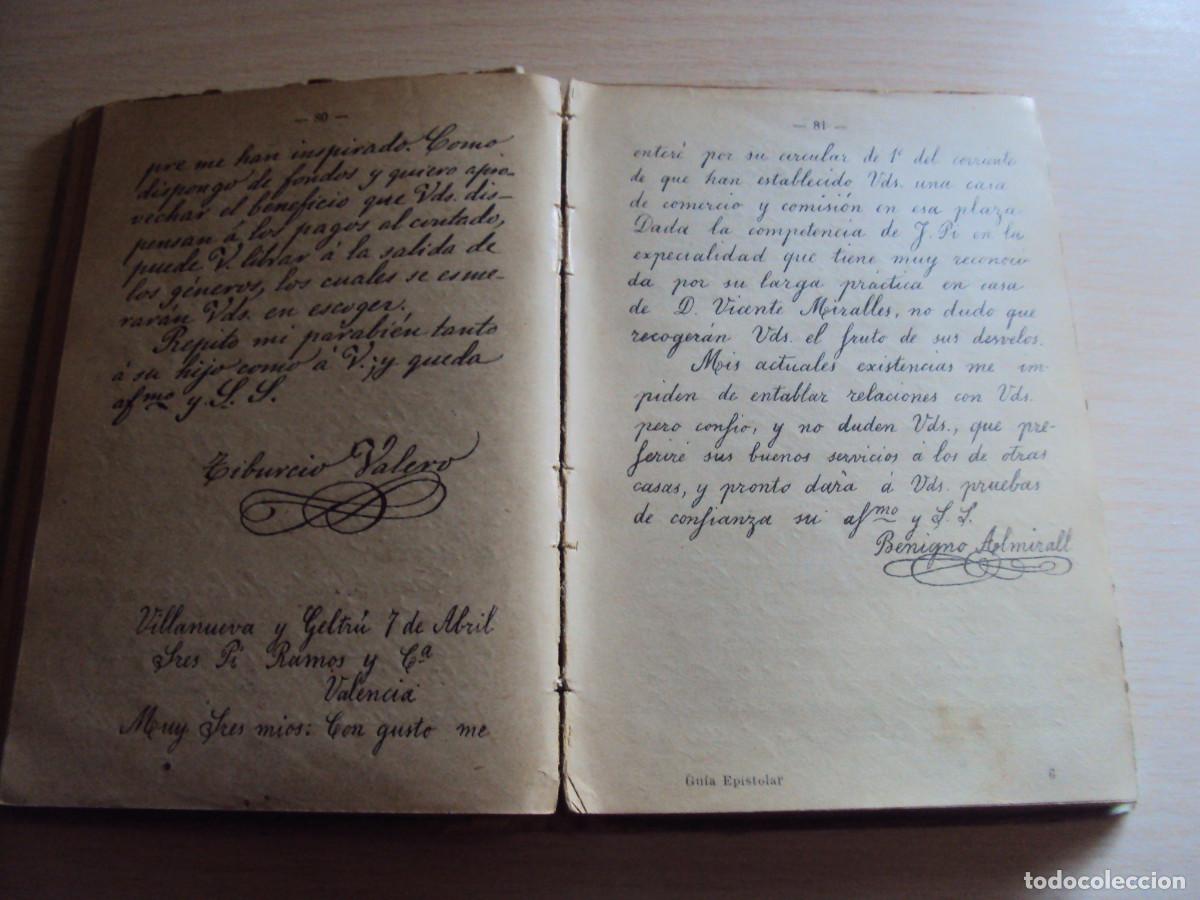 — 80 —
pre me han inspirado. Como
dispongo de fondos y quiero apro-
vechar el beneficio que Vds. dis-
pensan á los pagos al contado,
puede V. librar á la salida de
los géneros, los cuales se esme-
rarán Vds. en escoger.
Repito mi parabién tanto
á su hijo como á V.; y queda
afmo y S. S.
Tiburcio Valero
Villanueva y Geltrú 7 de Abril
Sres Pi Ramos y Cª
Valencia
Muy Sres mios: Con gusto me
— 81 —
enteré por su circular de 1º del corriente
de que han establecido Vds. una casa
de comercio y comisión en esa plaza
Dada la competencia de J. Pi en la
expecialidad que tiene muy reconoci
da por su larga práctica en casa
de D. Vicente Miralles, no dudo que
recogerán Vds. el fruto de sus desvelos.
Mis actuales existencias me im-
piden de entablar relaciones con Vds.
pero confio, y no duden Vds., que pre-
feriré sus buenos servicios á los de otras
casas, y pronto dará á Vds. pruebas
de confianza su afmo y S. S.
Benigno Almirall
Guía Epistolar 6
todocoleccion